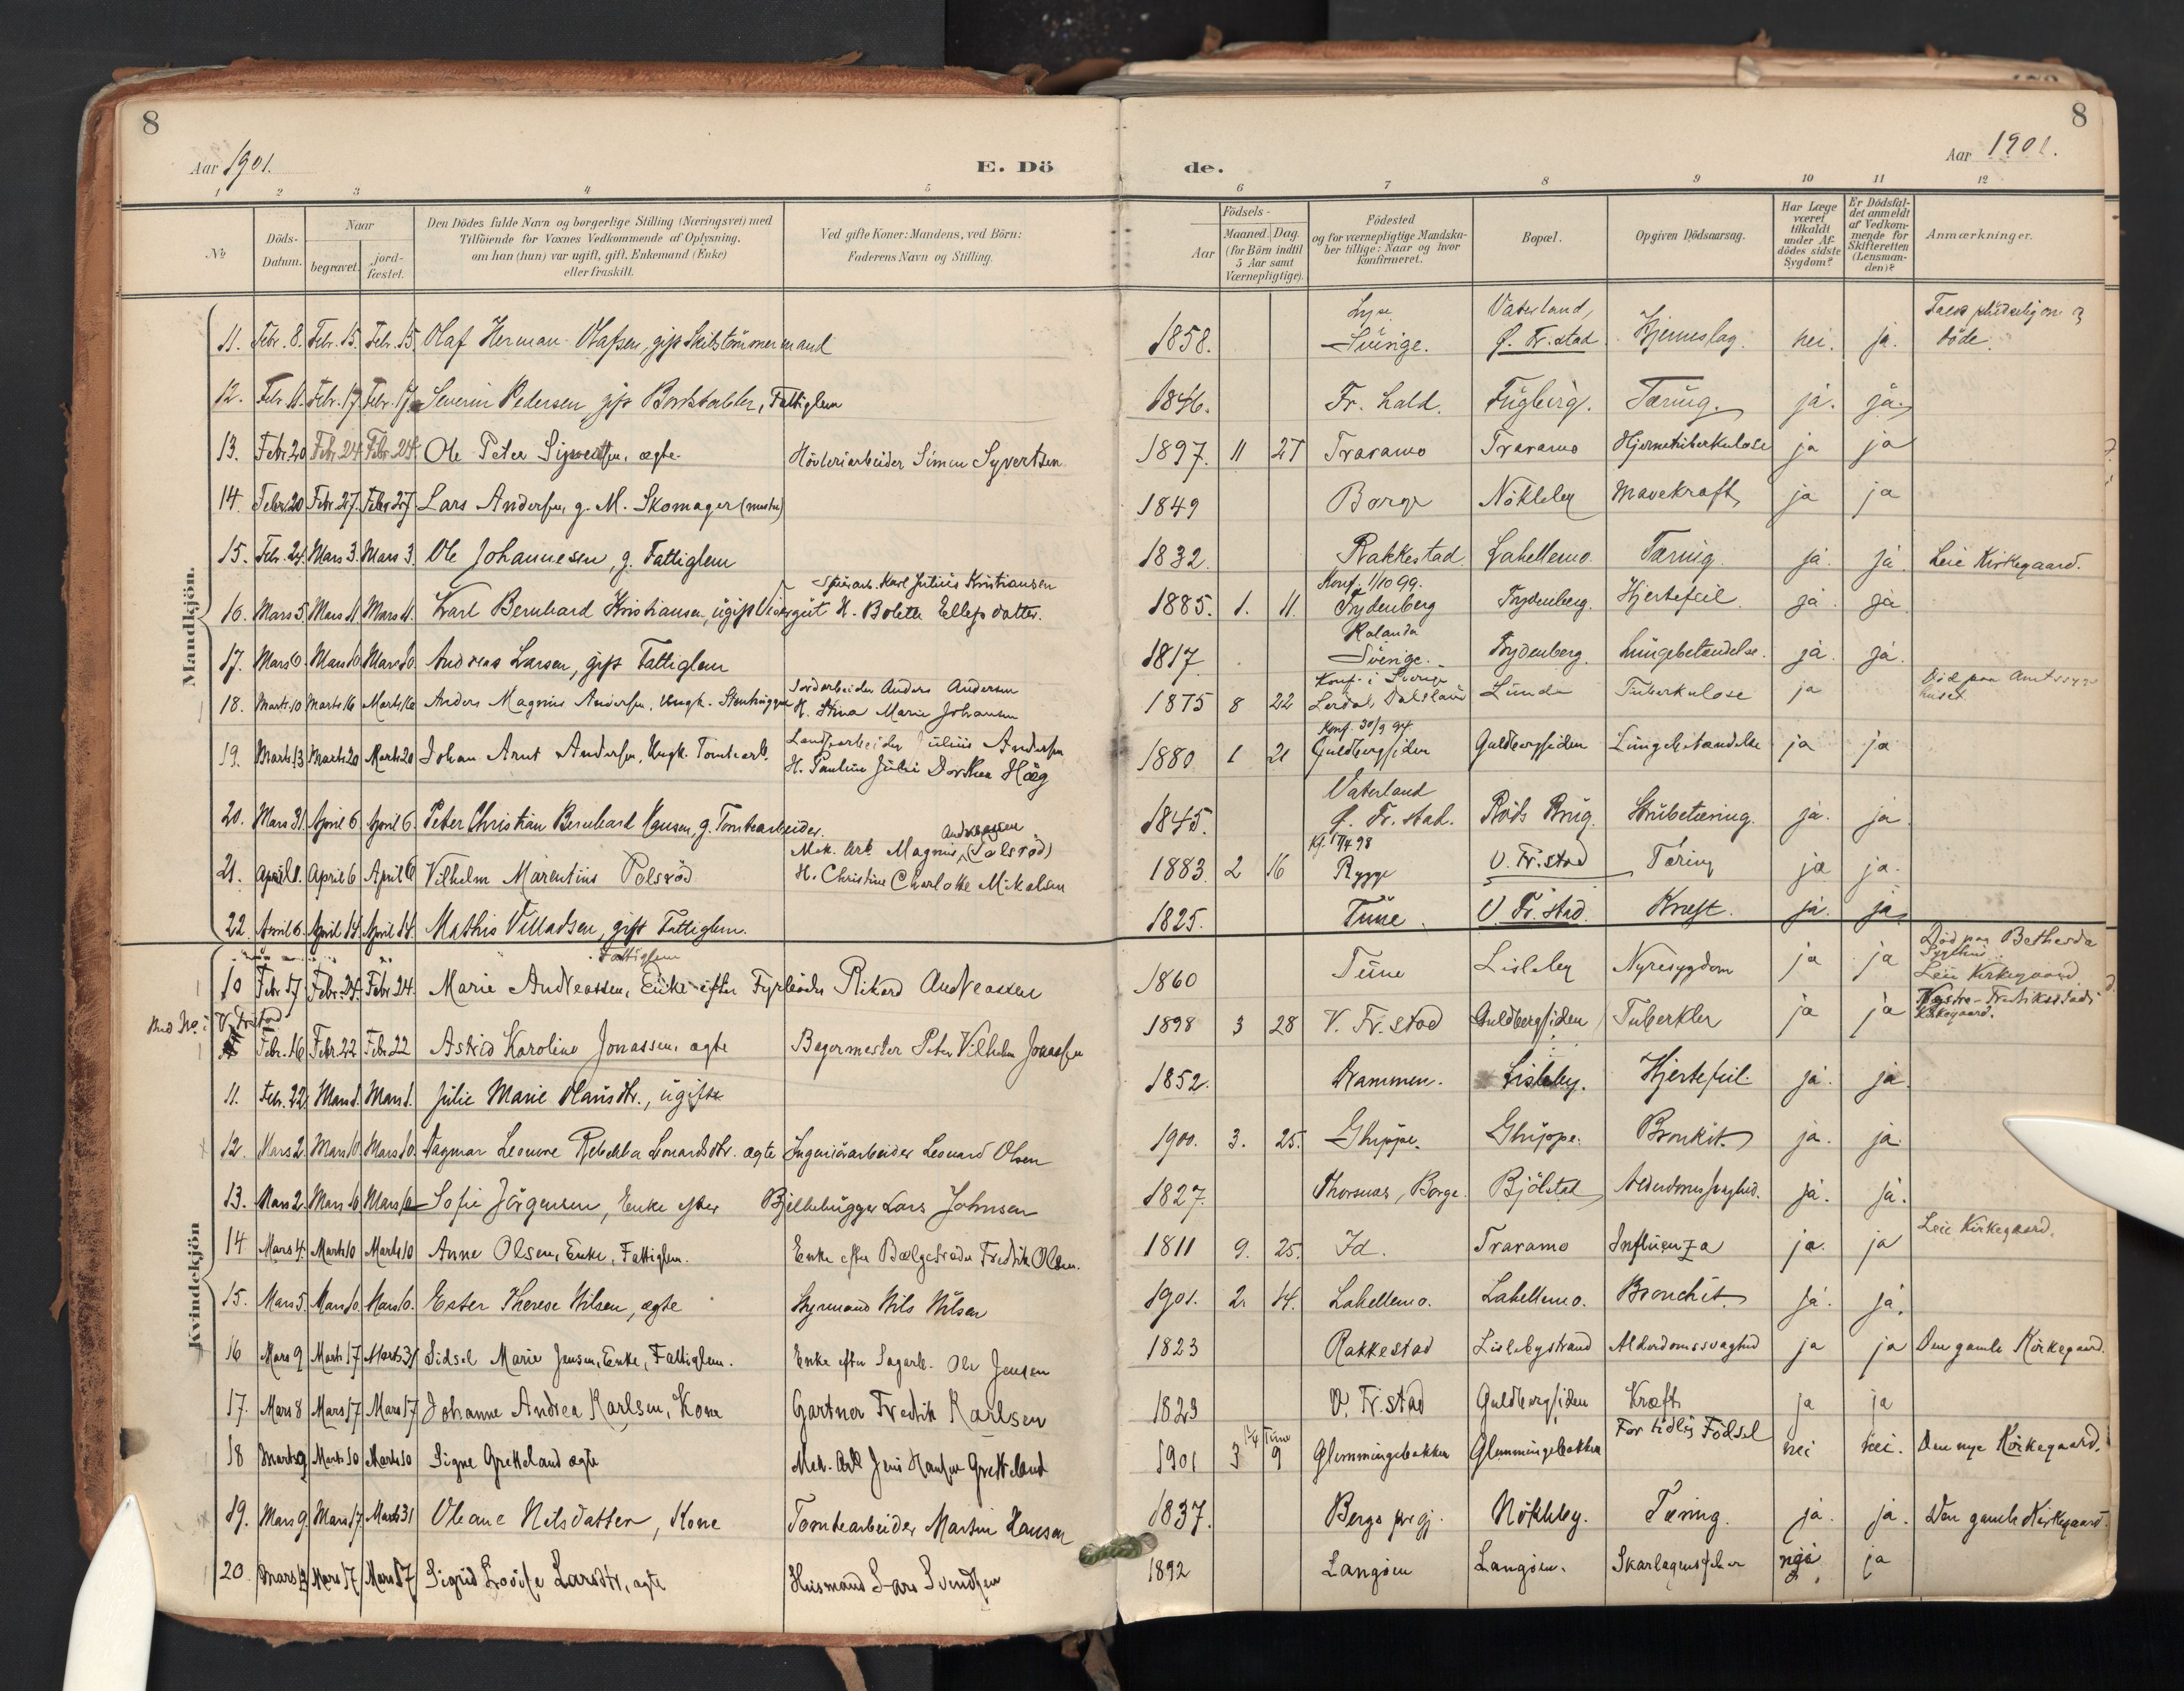 8
8
Aar 1901.
E. Dö
de.
Aar 1901.
1 2 3 4 5 6 7 8 9 10 11 12
No
Döds-Datum.
Naar
begravet.
jord-fæstet.
Den Dödes fulde Navn og borgerlige Stilling (Næringsvei) med
Tilföiende for Voxnes Vedkommende af Oplysning,
om han (hun) var ugift, gift, Enkemand (Enke)
eller fraskilt.
Ved gifte Koner: Mandens, ved Börn:
Faderens Navn og Stilling.
Födsels-
Aar
Maaned. Dag.
(for Börn indtil
5 Aar samt
Værnepligtige).
Födested
og for værnepligtige Mandska-
ber tillige: Naar og hvor
konfirmeret.
Bopæl.
Opgiven Dödsaarsag.
Har Læge
været
tilkaldt
under Af-
dödes sidste
Sygdom?
Er Dödsfal-
det anmeldt
af Vedkom-
mende for
Skifteretten
(Lensman-
den)?
Anmærkninger.
Mandkjön.
11. Febr. 8. Feb. 15. Feb. 15. Olaf Herman Olafsen, gift Skibstömmermand 1858. Lyse Sverige. Vaterland, Ø. Fr.stad Hjerneslag. nei. ja. döde.
12. Febr. 11. Febr. 17. Febr. 17. Severin Pedersen gift Bordstabler, Fattiglem 1846. Fr. hald. Fuglevig. Tæring. ja. ja.
13. Febr 20 Febr. 24 Febr. 24. Ole Peter Sigvertsen, ægte. Hövleriarbeider Simen Syvertsen. 1897. 11 27 Traramo Traramo Hjernetuberkulose ja ja
14. Febr. 20 Febr. 27. Febr 27 Lars Andersen, g. M. Skomager (mester) 1849 Borge Nökleby Mavekraft ja ja
15. Feb. 24. Mars 3. Mars 3. Ole Johannesen, g. Fattiglem 1832. Rakkestad. Lahellemo. Tæring. ja. ja. Leie Kirkegaard.
Karl Julius Kristiansen
Konf. 1/10 99.
16. Mars 5. Mars 11. Mars 11. Karl Bernhard Kristiansen, ugift Visergut H. Bolette Ellefsdatter. 1885. 1. 11. Trydenberg Trydenberg. Hjertefeil. ja. ja.
17. Mars 6. Mars 10 Mars 10. Andreas Larsen, gift Fattiglem 1817. Rolanda Sverige. Trydenberg. Lungebetændelse. ja. ja.
Jordarbeider Anders Andersen
Konf. i Sverige
18. Marts 10 Marts 16 Marts 16 Anders Magnus Andersen, Ungk. Stenhugger H. Stina Marie Johansen 1875 8 22 Lerdal, Dalsland Lunde Tuberkulose ja Död paa Amtssyge huset.
Landsarbeider Julius Andersen
Konf. 30/9 94
19. Marts 13 Marts 20 Marts 20 Johan Arnt Andersen, Ungk. Tomtearb. H. Pauline Julie Dorthea Höeg 1880 1 21 Guldbergsiden Guldbergsiden Lungebetændelse ja ja
20. Mars 31. April 6 April 6. Peter Christian Bernhard Hansen, g. Tomtearbeider. 1845. Vaterland Ø. Fr. stad. Röds Brug. Strubetæring. ja. ja.
Andreassen
Mek. Arb. Magnus, (Pølsröd)
Kf. 17/4 98
21. April 1. April 6 April 6 Vilhelm Marentius Pølsröd H. Christine Charlotte Mikalsen 1883. 2 16 Rygge V. Fr.stad Tæring ja ja.
22. April 6. April 14. April 14. Mathis Villadsen, gift Fattiglem. 1825. Tune. V. Fr. stad. Kræft. ja. ja.
Kvindekjön
Fattiglem
10 Febr 17 Febr. 24. Febr 24. Marie Andreassen, Enke efter Fyrböder Rikard Andreassen 1860 Tune Lisleby Nyresygdom ja ja Död paa Bethesda Leie Kirkegaard.
V. Frstad
Febr. 16 Febr 22 Febr. 22 Astrid Karoline Jonassen, ægte Bagermester Peter Vilhelm Jonassen 1898 3 28 V. Fr. stad Guldbergsiden Tuberkler ja ja Vestre-Fredriksstads Kirkegaard.
11. Febr. 22 Mars 1. Mars 1. Julie Marie Olausdtr., ugift 1852. Drammen. Lisleby. Hjertefeil. ja. ja.
12. Mars 2. Mars 10 Mars 10. Dagmar Leonore Rebekka Leonardsdtr. ægte Ingeniörarbeider Leonard Olsen 1900. 3. 25. Gluppe. Gluppe. Bronkit ja. ja.
13. Mars 2. Mars 10. Mars 10 Sofie Jörgensen, Enke efter Bjelkehugger Lars Johnsen 1827. Thorsnes, Borge. Bjölstad Alderdomssvaghed. ja. ja.
14 Mars 4. Marts 10 Marts 10 Anne Olsen, Enke, Fattiglem. Enke efter Bælgetræder Fredrik Olsen. 1811 9. 25. Id. Traramo Influenza ja. ja Leie Kirkegaard.
15. Mars 5. Mars 10. Mars 10. Ester Therese Nilsen, ægte Styrmand Nils Nilsen 1901. 2. 14. Lahellemo. Lahellemo. Bronchit ja. ja.
16 Mars 9 Marts 17 Marts 31 Sidsel Marie Jensen, Enke, Fattiglem. Enke efter Sagarb. Ole Jensen 1823 Rakkestad Lislebystrand Alderdomssvaghed ja ja Den gamle Kirkegaard.
17. Mars 8 Mars 17 Mars 17 Johanne Andrea Karlsen, Kone Gartner Fredrik Karlsen 1823 V. Fr. stad Guldbergsiden Kræft ja ja
18 Marts 9 Marts 10 Marts 10 Signe Gretteland ægte Mek. Arb. Jens Hansen Gretteland 1901 3 9 Glemmingebakken Glemmingebakken For tidlig Födsel nei nei. Den nye Kirkegaard.
19. Mars 9. Mars 17 Marts 31 Oleane Nilsdatter, Kone Tomtearbeider Martin Hansen 1837. Berge prgj. Nökleby. Tæring. ja. ja. Den gamle Kirkegaard.
20 Mars 12 Mars 17 Mars 17 Sigrid Lovise Larsdtr, ægte Husmand Lars Svendsen 1892 Langöen Langöen. Skarlagensfeber ja